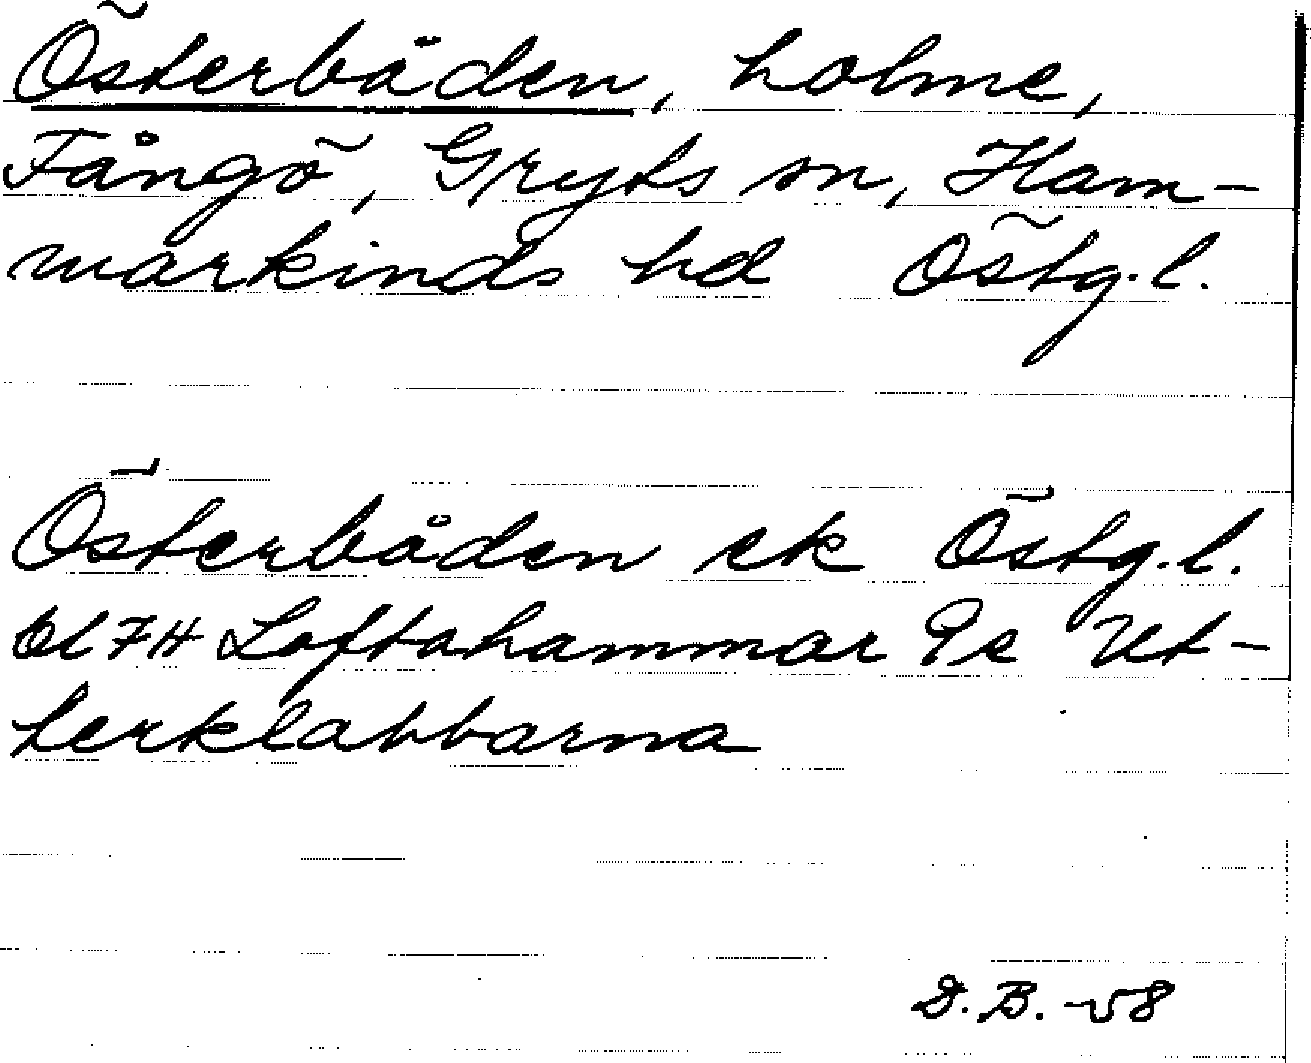 Österbåden, holme,
Fångö, Gryts sn, Ham-
markinds hd Östg.l.
Österbåden ek Östg.l.
Bl 7H Loftahammar 9e Ut-
terklabbarna
D.B. -58